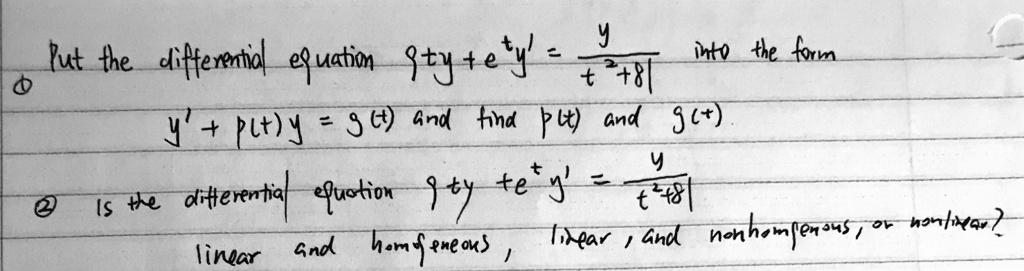 ① Put the differential equation 9ty + e^t y' = y/(t^2+81) into the form
y' + p(t)y = g(t) and find p(t) and g(t).
② Is the differential equation 9ty + e^t y' = y/(t^2+81)
linear and homogeneous, linear, and nonhomgenous, or nonlinear?